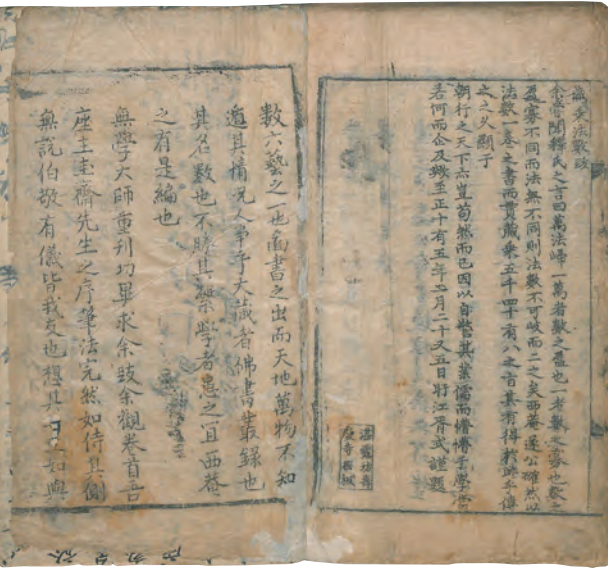 藏乘法數跋
余嘗聞釋氏之言曰萬法歸一萬者數之盈也一者數之寡也數之
盈寡不同而法無不同則法數不可岐而二之矣西菴遂公確然以
法數一卷之書而貫藏乘五千四十有八之言其有得於此乎傳
之之久顯于
朝行之天下亦豈苟然而已因以自警其業儒而懵懵于學
若何而企及幾至正十有五年二月二十又五日旴江胥式謹題
數六藝之一也啚書之出而天地萬物不知
遁其情况人爭乎大藏者佛書叢録也
其名數也不勝其繁學者患之宜西菴
之有是編也
無學大師重刊功畢求余跋余觀卷首吾
座主圭齋先生之序筆法完然如侍其側
無說伯敬有儀皆我友也想其 如與